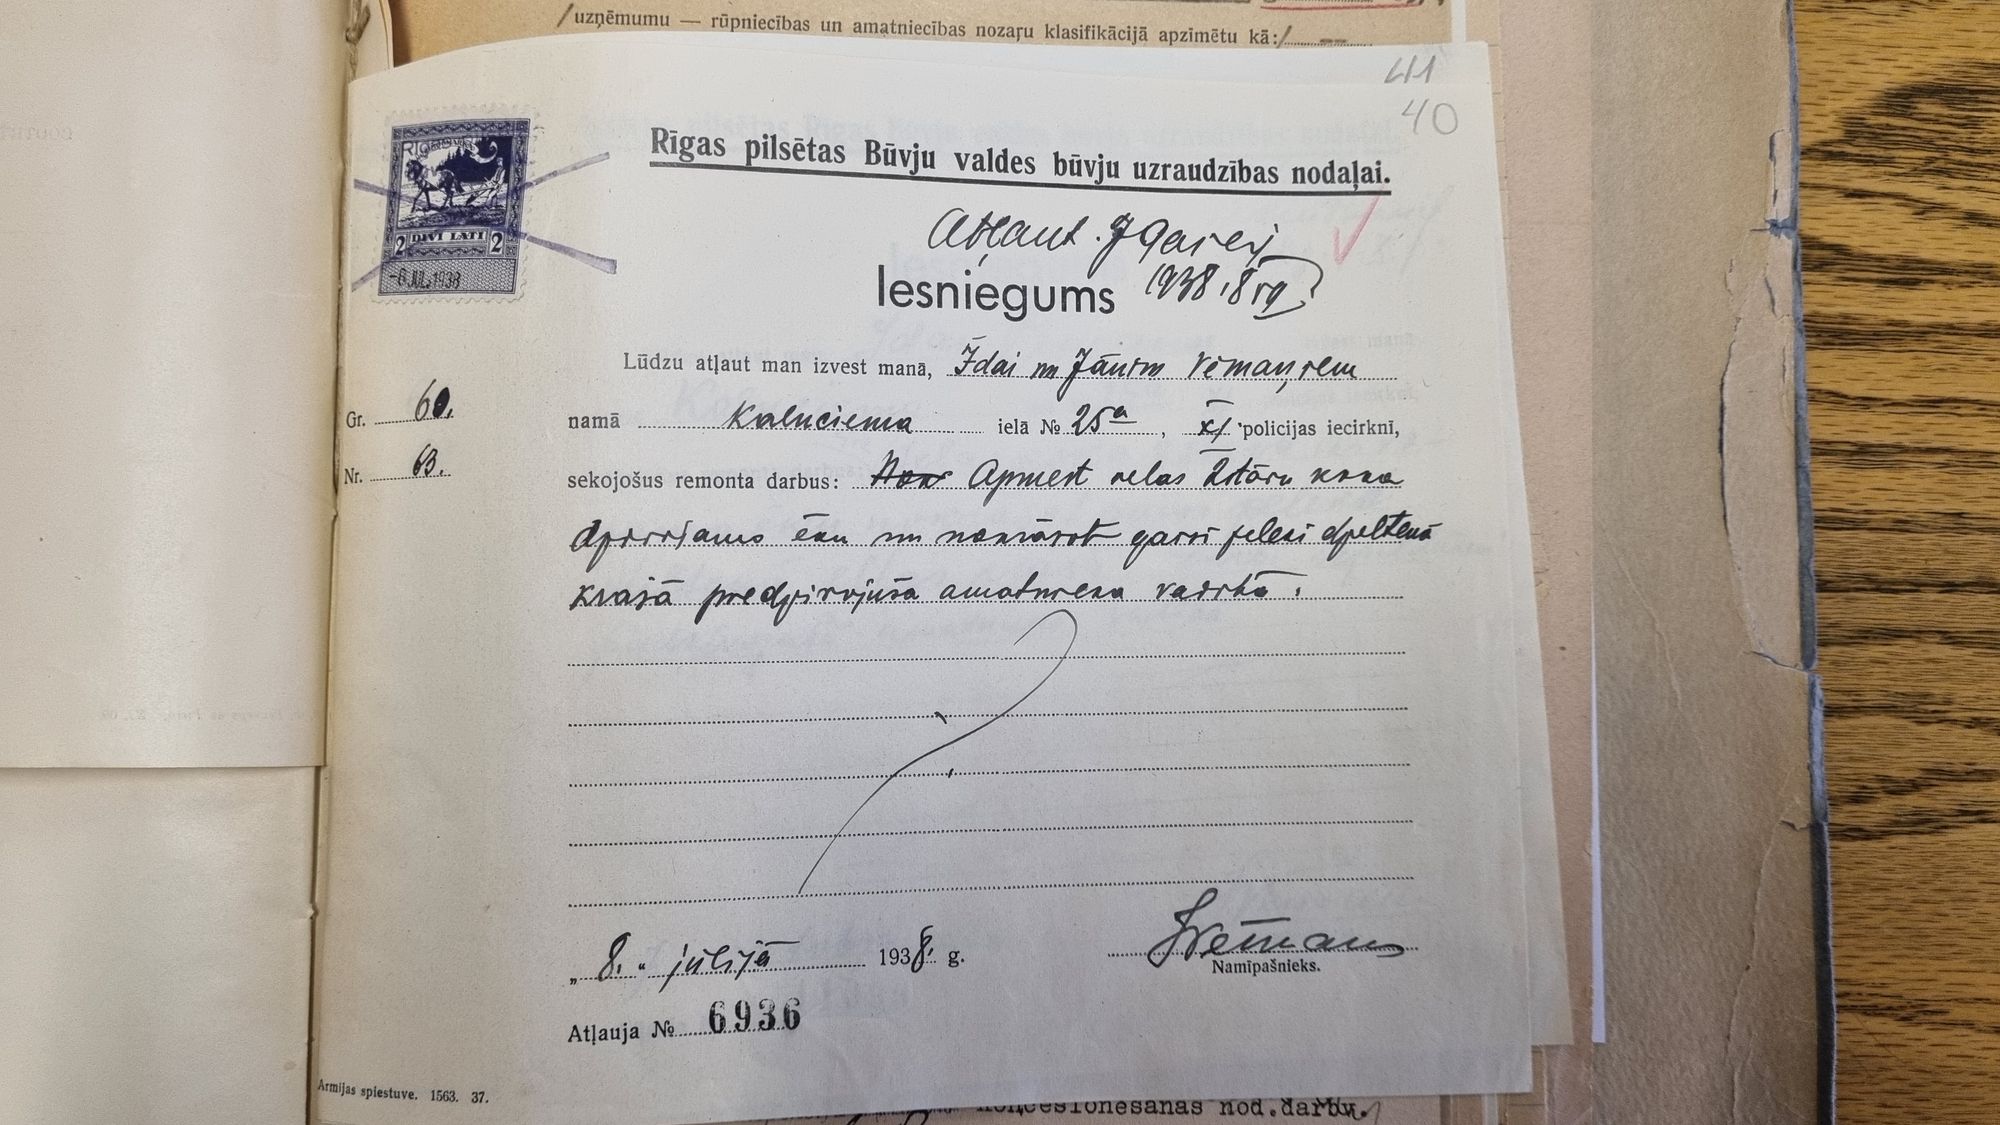 /uzņēmumu — rūpniecības un amatniecības nozaŗu klasifikācijā apzīmētu kā:/
41
40
Rīgas pilsētas Būvju valdes būvju uzraudzības nodaļai.
2 DIVI LATI 2
-6 JUL. 1938
Atļaut.
Iesniegums 1938
Lūdzu atļaut man izvest manā, Īdai un Jānim Vēmaņiem
Gr. 60.
namā Kalnciema ielā № 25a, XI policijas iecirknī,
Nr. 63.
sekojošus remonta darbus: Apmest ielas 2stāvu koka
dzīvojamo ēku un nokrāsot gaiši pelēki dzeltenā
krāsā predzīvojušā amatnieka vadībā.
„8.“ jūlijā 1938. g.
Namīpašnieks.
Atļauja № 6936
Armijas spiestuve. 1563. 37.
nod. darbv.